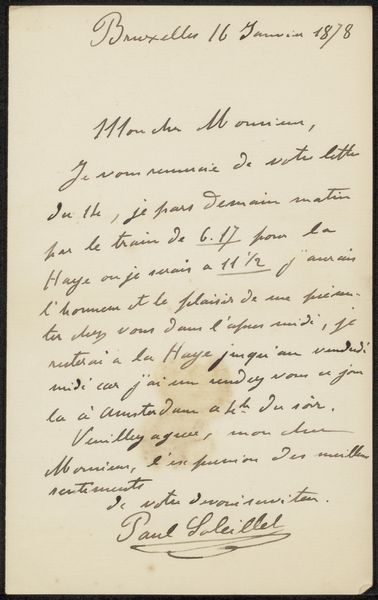 Bruxelles 16 Janvier 1878
Mon cher Monsieur,
Je vous remercie de votre lettre
du 14, je pars demain matin
par le train de 6.17 pour la
Haye ou je serais a 11 1/2 j'aurais
l'honneur et le plaisir de me présen-
ter chez vous dans l'après midi, je
resterai a la Haye jusqu'au vendredi
midi car j'ai un rendez vous ce jour
la à Amsterdam a 4h du soir.
Veuillez agréer, mon cher
Monsieur, l'expression des meilleurs
sentiments
de votre devoué serviteur.
Paul Soleillet